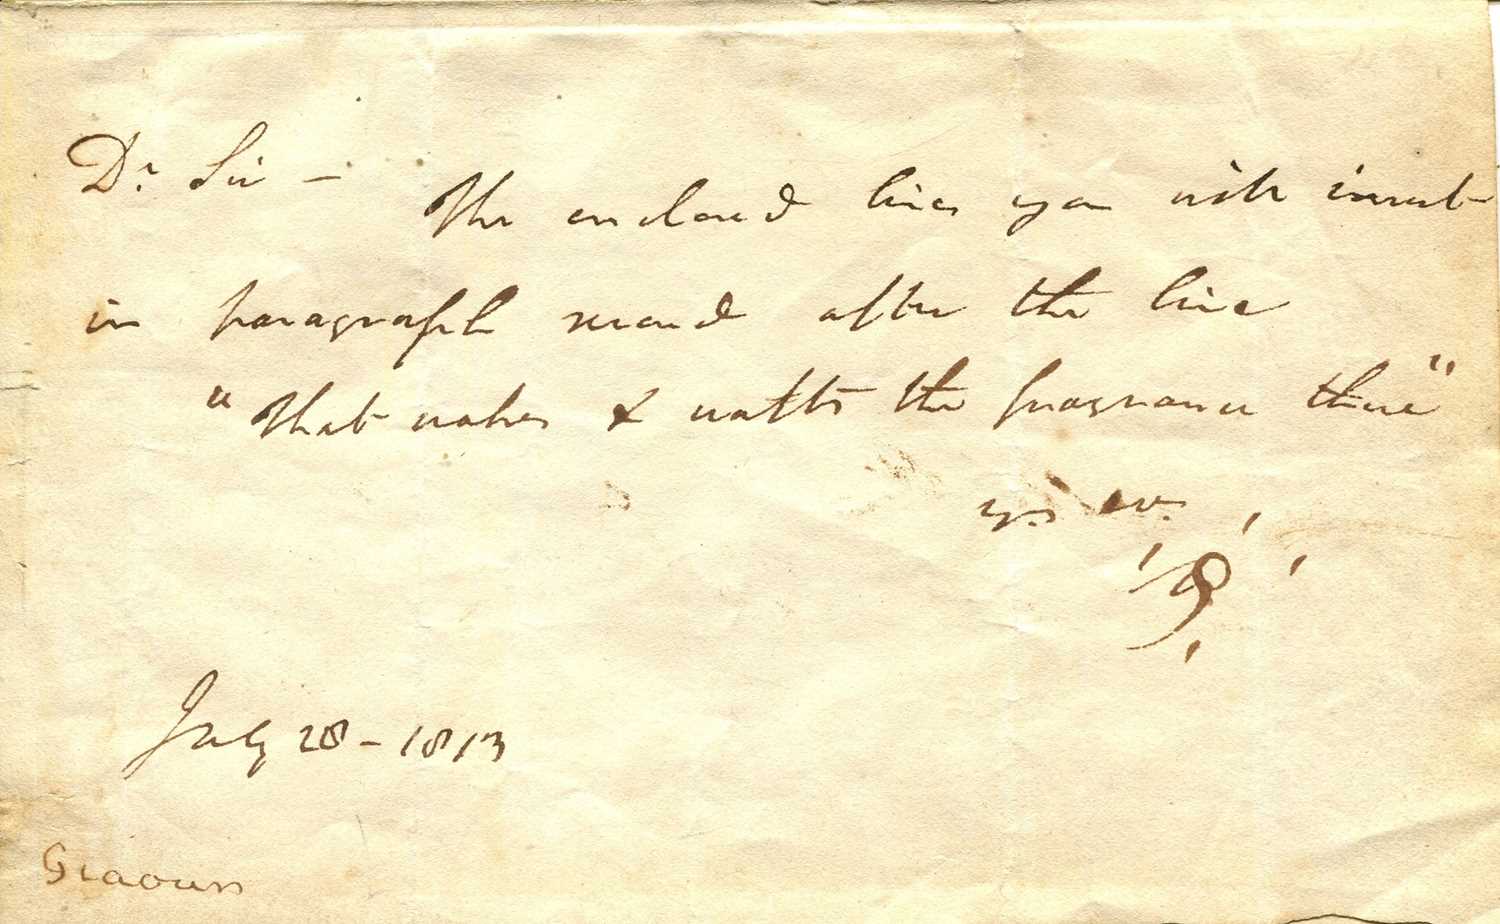 Dr. Sir –
The enclosed lines you will insert
in paragraph second after the line
"That wakes & wafts the fragrance there"
yrs. ev.
B
July 28 – 1813